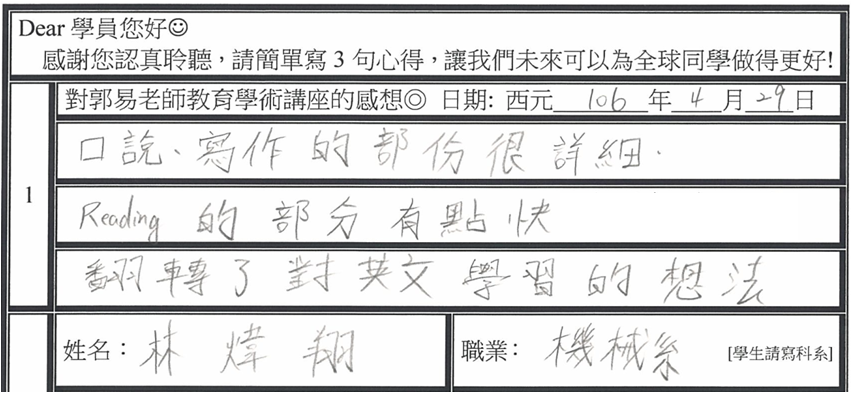 Dear 學員您好☺
感謝您認真聆聽，請簡單寫 3 句心得，讓我們未來可以為全球同學做得更好!
1
對郭易老師教育學術講座的感想◎ 日期: 西元 106 年 4 月 29 日
口說、寫作的部份很詳細.
Reading 的部分有點快
翻轉了對英文學習的想法
姓名：林煒翔 職業：機械系 [學生請寫科系]